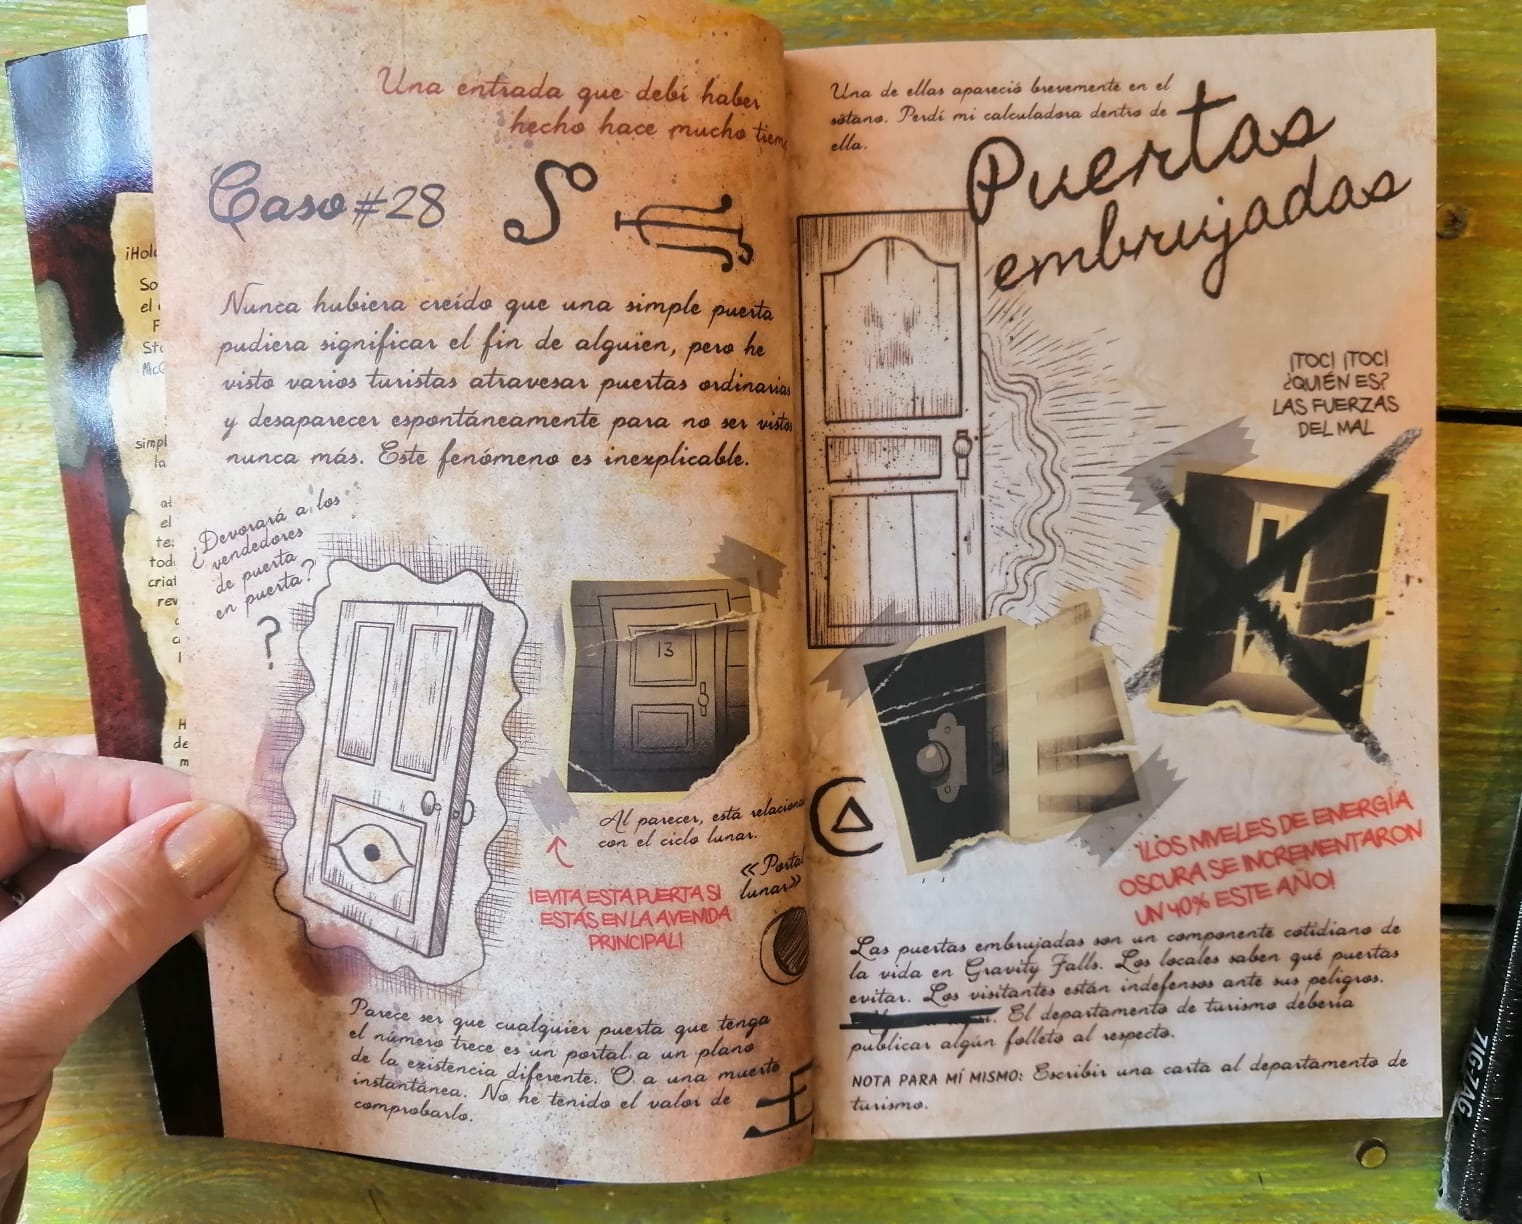 Una entrada que debí haber
hecho hace mucho
Caso #28
Nunca hubiera creído que una simple puerta
pudiera significar el fin de alguien, pero he
visto varios turistas atravesar puertas ordinarias
y desaparecer espontáneamente para no ser vistos
nunca más. Este fenómeno es inexplicable.
¿Devorará a los
vendedores
de puerta
en puerta?
?
13
Al parecer, está
con el ciclo lunar.
¡EVITA ESTA PUERTA SI
ESTÁS EN LA AVENIDA
PRINCIPAL!
«Portal
lunar»
Parece ser que cualquier puerta que tenga
el número trece es un portal a un plano
de la existencia diferente. O a una muerte
instantánea. No he tenido el valor de
comprobarlo.
Una de ellas apareció brevemente en el
sótano. Perdí mi calculadora dentro de
ella.
Puertas
embrujadas
¡TOC! ¡TOC!
¿QUIÉN ES?
LAS FUERZAS
DEL MAL
¡LOS NIVELES DE ENERGÍA
OSCURA SE INCREMENTARON
UN 40% ESTE AÑO!
Las puertas embrujadas son un componente cotidiano de
la vida en Gravity Falls. Los locales saben qué puertas
evitar. Los visitantes están indefensos ante sus peligros.
El departamento de turismo debería
publicar algún folleto al respecto.
NOTA PARA MÍ MISMO: Escribir una carta al departamento de
turismo.
ZIG-ZAG